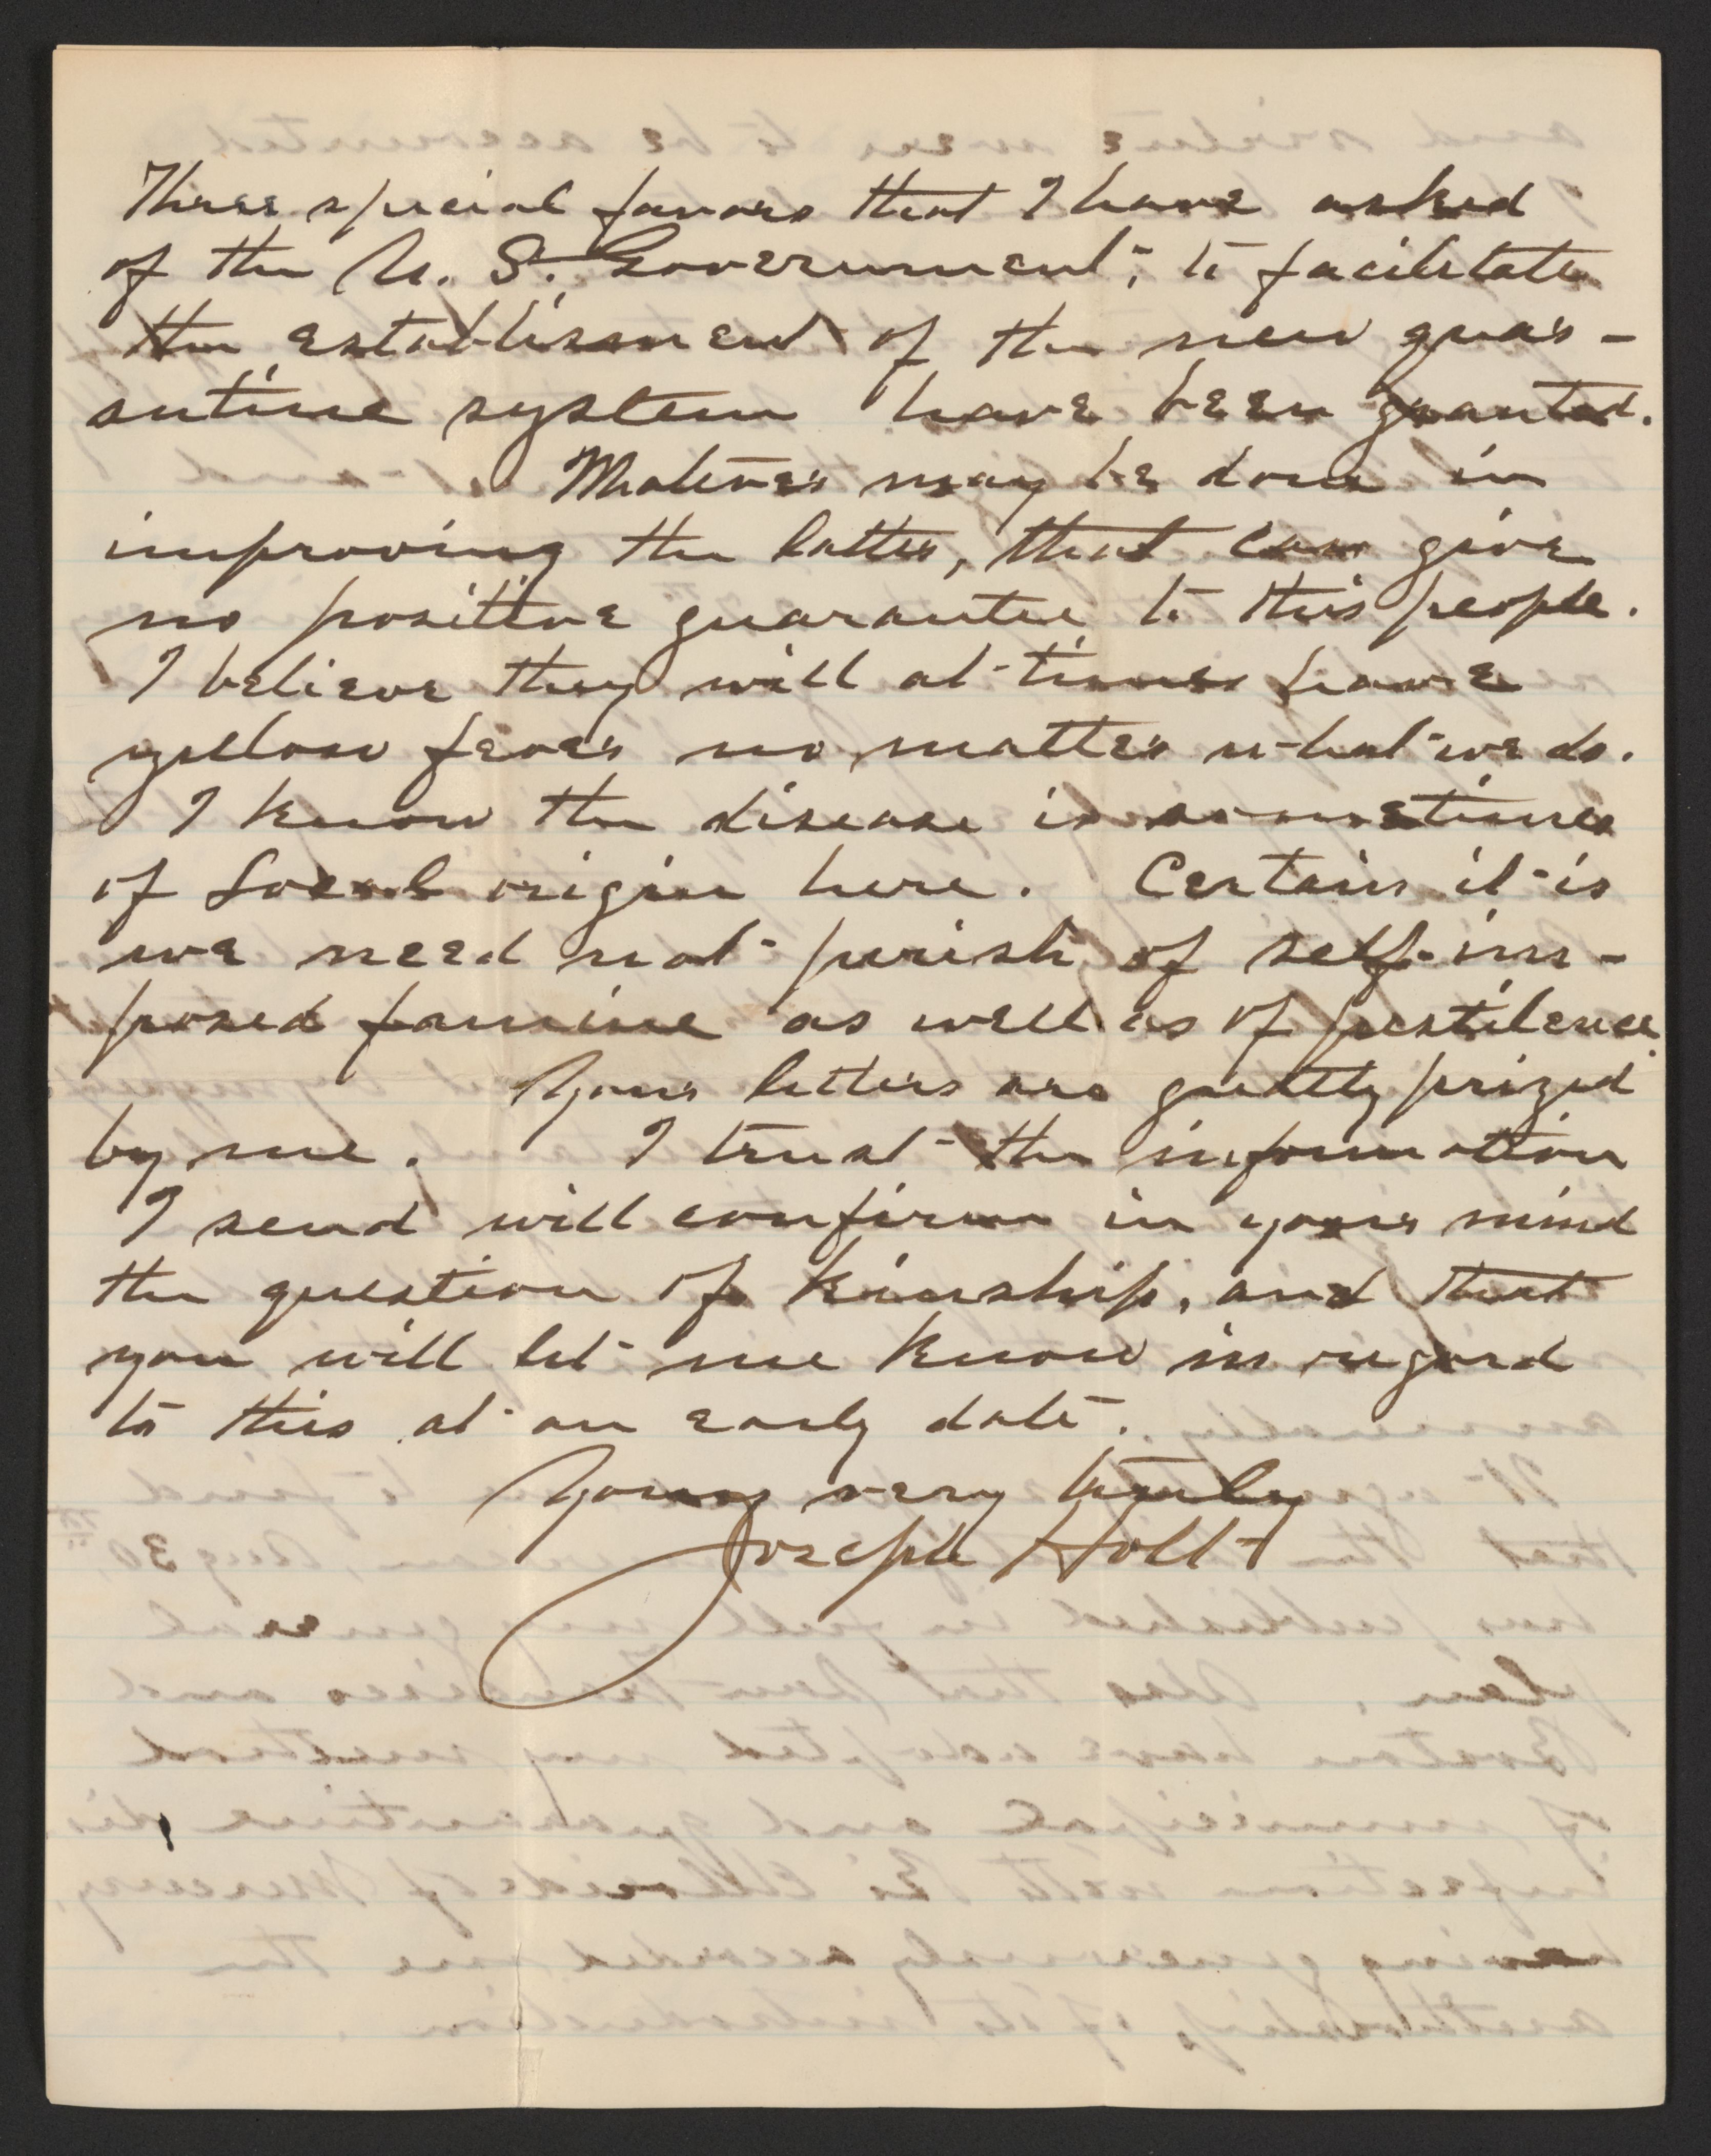 Three special favors that I have asked
of the U. S. Government, to facilitate
the establissment of the new quar-
antine system have been granted.
Whatever may be done in
improving the latter, that can give
no positive guarantee to this people.
I believe they will at times have
yellow fever no matter what we do.
I know the disease is sometimes
of local origin here. Certain it is
we need not perish of self-im-
posed famine as well as of pestilence.
Your letters are greatly prized
by me. I trust the information
I send will confirm in your mind
the question of kinship, and that
you will let me know in regard
to this at an early date.
Yours very truly
Joseph Holt